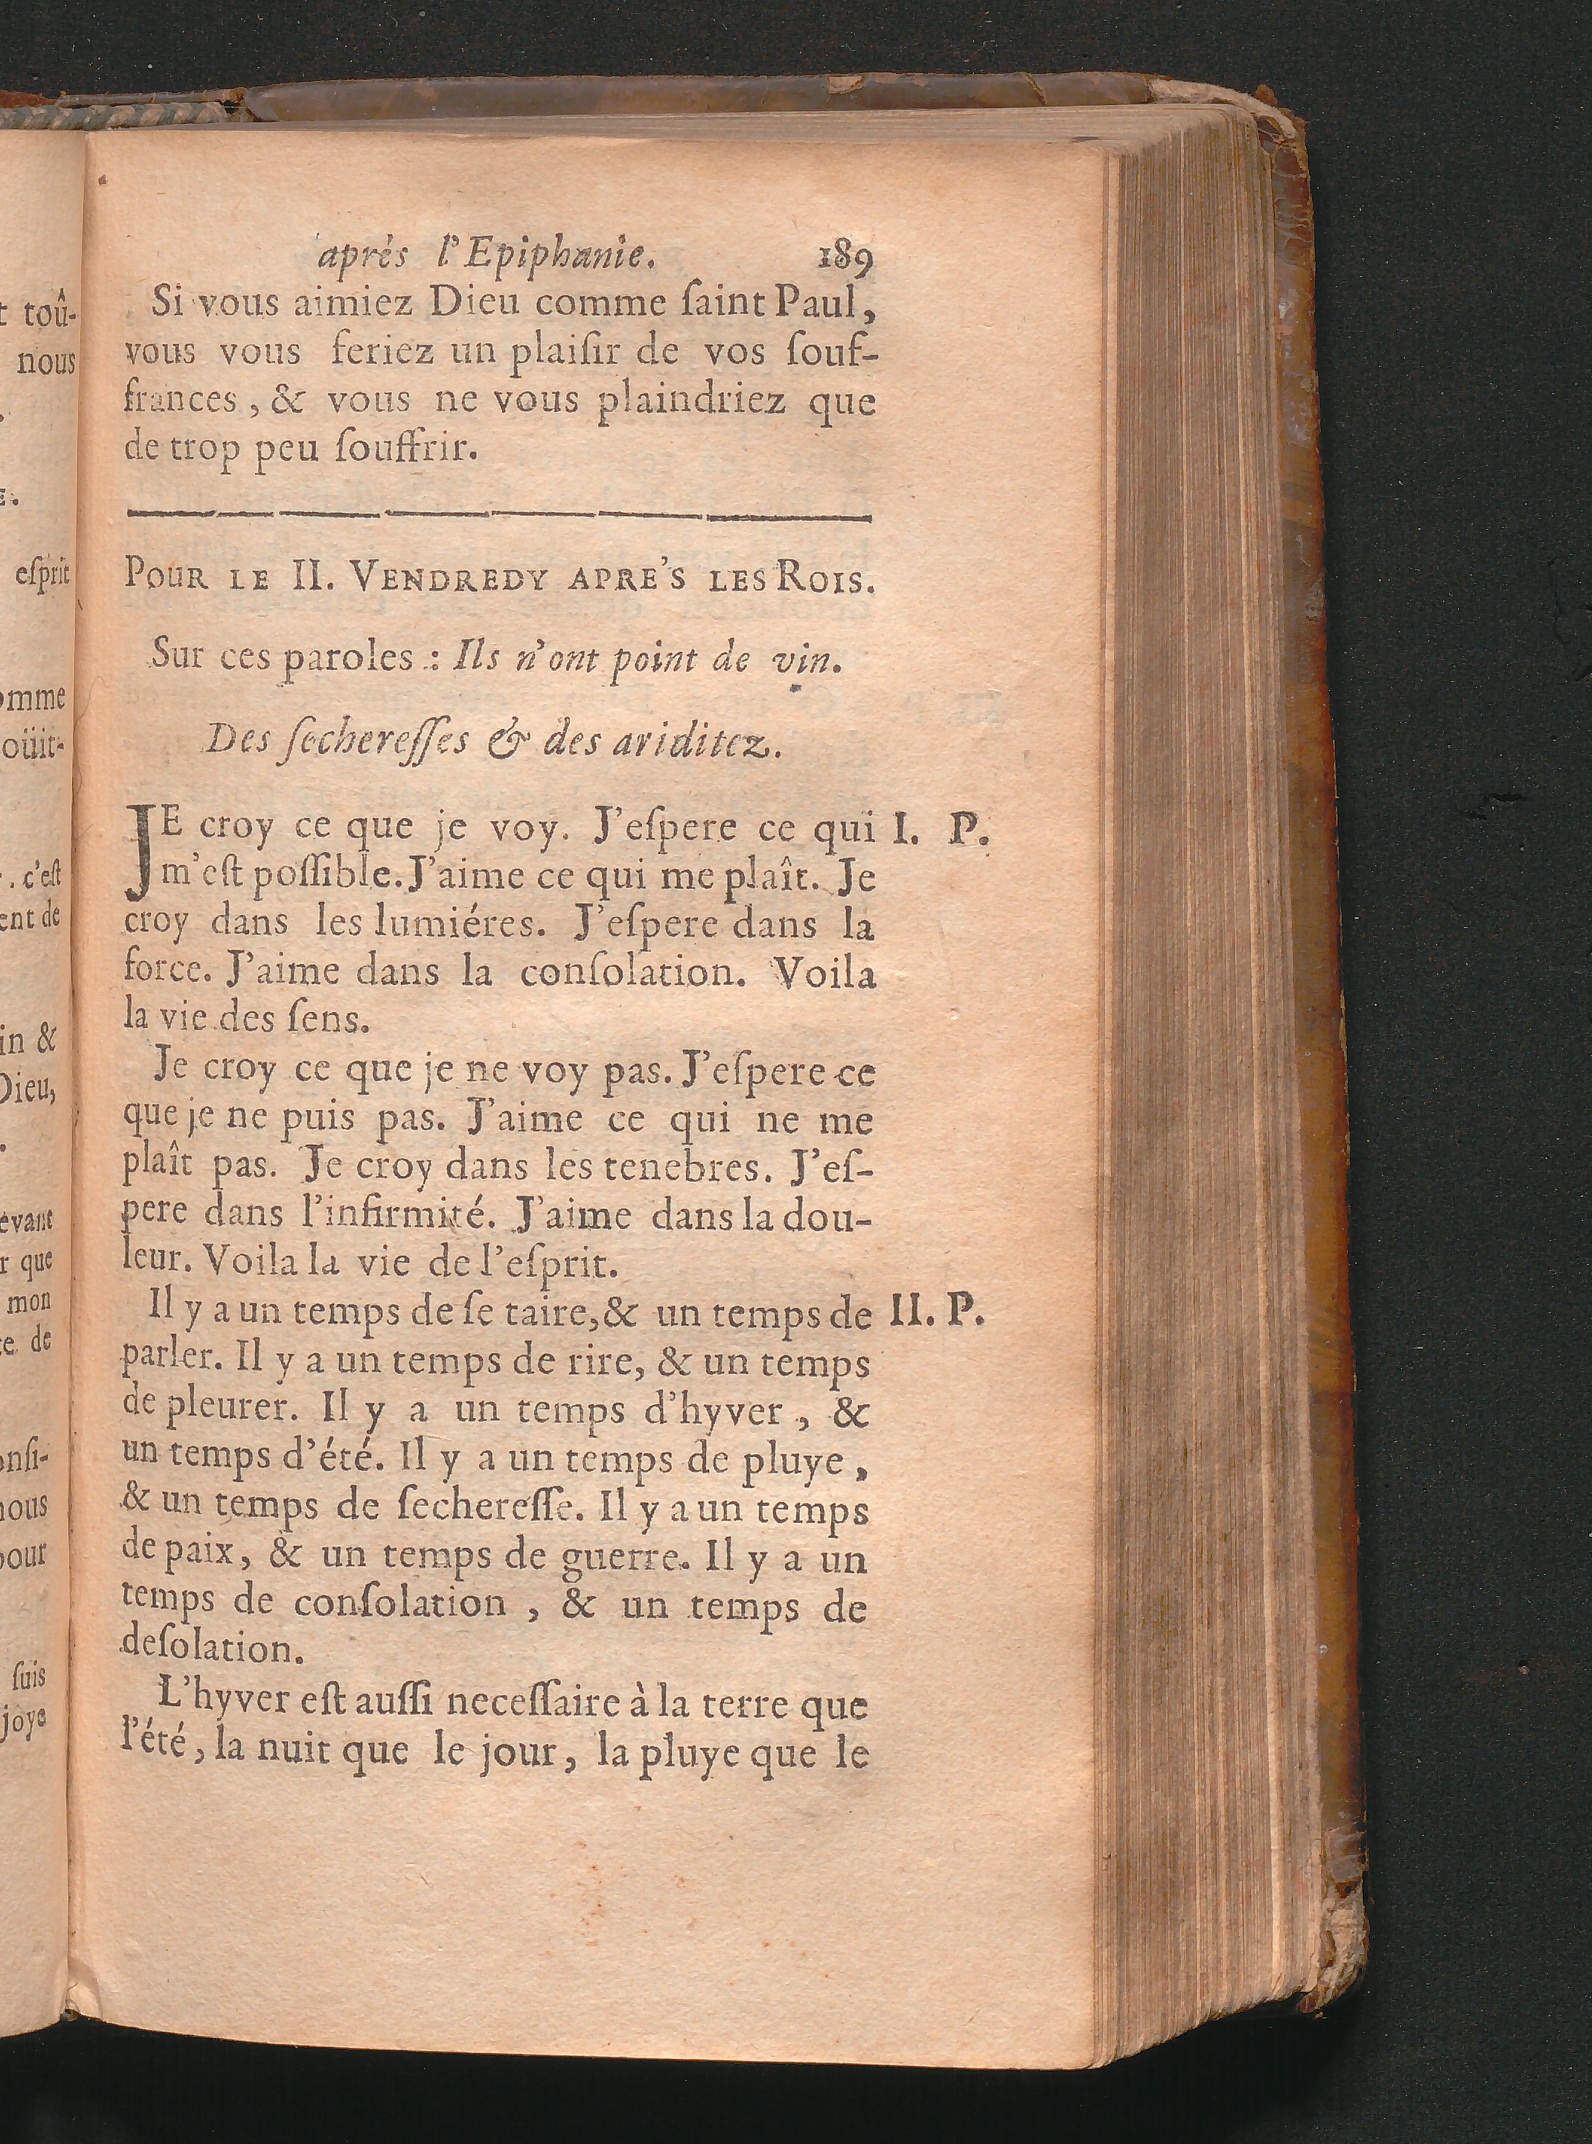 aprés l'Epiphanie. 189
Si vous aimiez Dieu comme ſaint Paul,
vous vous feriez un plaiſir de vos ſouf-
frances, & vous ne vous plaindriez que
de trop peu ſouffrir.
POUR LE II. VENDREDY APRE'S LES ROIS.
Sur ces paroles : Ils n'ont point de vin.
Des ſechereſſes & des ariditez.
JE croy ce que je voy. J'eſpere ce qui I. P.
m'eſt poſſible. J'aime ce qui me plaît. Je
croy dans les lumiéres. J'eſpere dans la
force. J'aime dans la conſolation. Voila
la vie des ſens.
Je croy ce que je ne voy pas. J'eſpere ce
que je ne puis pas. J'aime ce qui ne me
plaît pas. Je croy dans les tenebres. J'eſ-
pere dans l'infirmité. J'aime dans la dou-
leur. Voila la vie de l'eſprit.
Il y a un temps de ſe taire, & un temps de II. P.
parler. Il y a un temps de rire, & un temps
de pleurer. Il y a un temps d'hyver, &
un temps d'été. Il y a un temps de pluye,
& un temps de ſechereſſe. Il y a un temps
de paix, & un temps de guerre. Il y a un
temps de conſolation, & un temps de
deſolation.
L'hyver eſt auſſi neceſſaire à la terre que
l'été, la nuit que le jour, la pluye que le